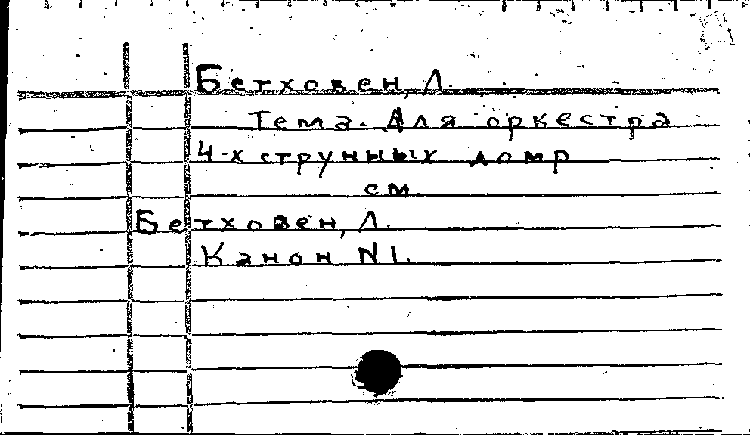 Бетховен, Л.
Тема. Для оркестра
4-х струнных домр
см.
Бетховен, Л.
Канон N1.